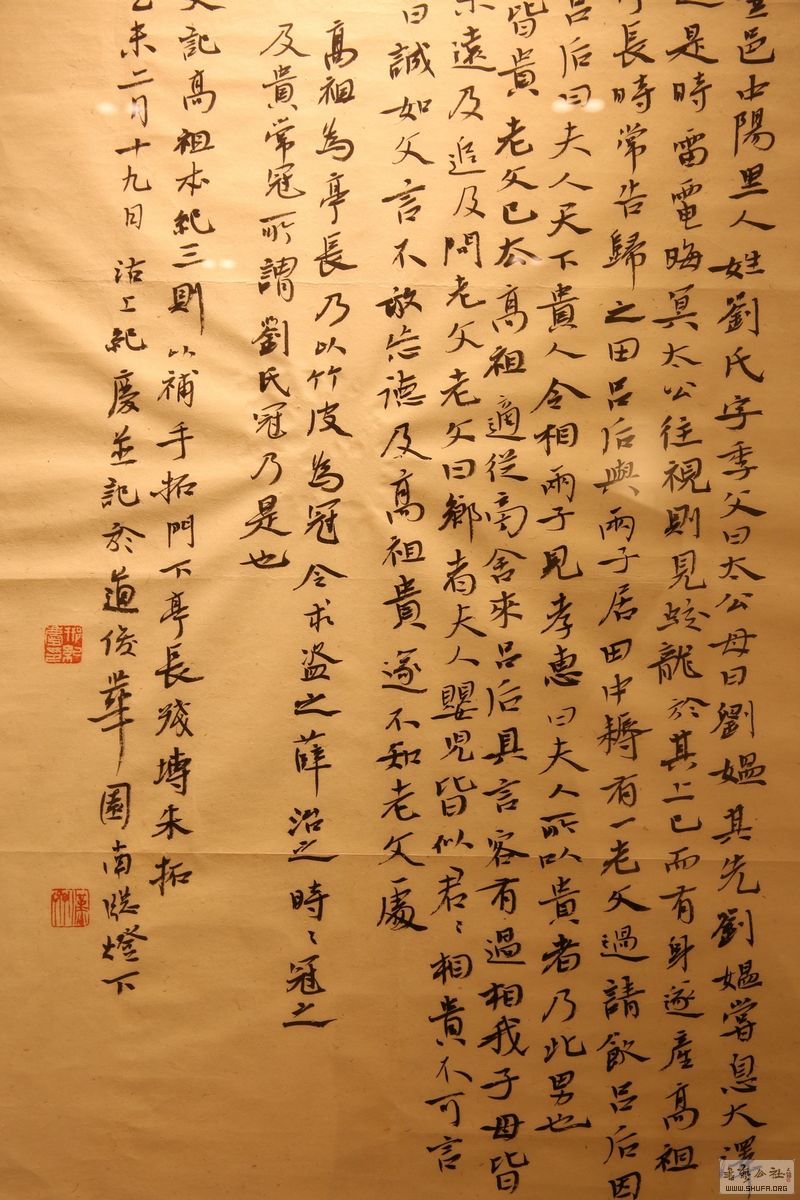 豐邑中陽里人姓劉氏字季父曰太公母曰劉媼其先劉媼嘗息大澤
是時雷電晦冥太公往視則見蛟龍於其上已而有身遂產高祖
長時常告歸之田呂后與兩子居田中耨有一老父過請飲呂后因
呂后曰夫人天下貴人令相兩子見孝惠曰夫人所以貴者乃此男也
皆貴老父已去高祖適從旁舍來呂后具言客有過相我子母皆
未遠及追及問老父老父曰鄉者夫人嬰兒皆似君〻相貴不可言
曰誠如父言不敢忘德及高祖貴遂不知老父處
高祖為亭長乃以竹皮為冠令求盜之薛治之時〻冠之
及貴常冠所謂劉氏冠乃是也
記高祖本紀三則以補手拓門下亭長殘塼朱拓
乙未二月十九日沽上紀慶並記於道俊華園南牕燈下
WWW.SHUFA.ORG